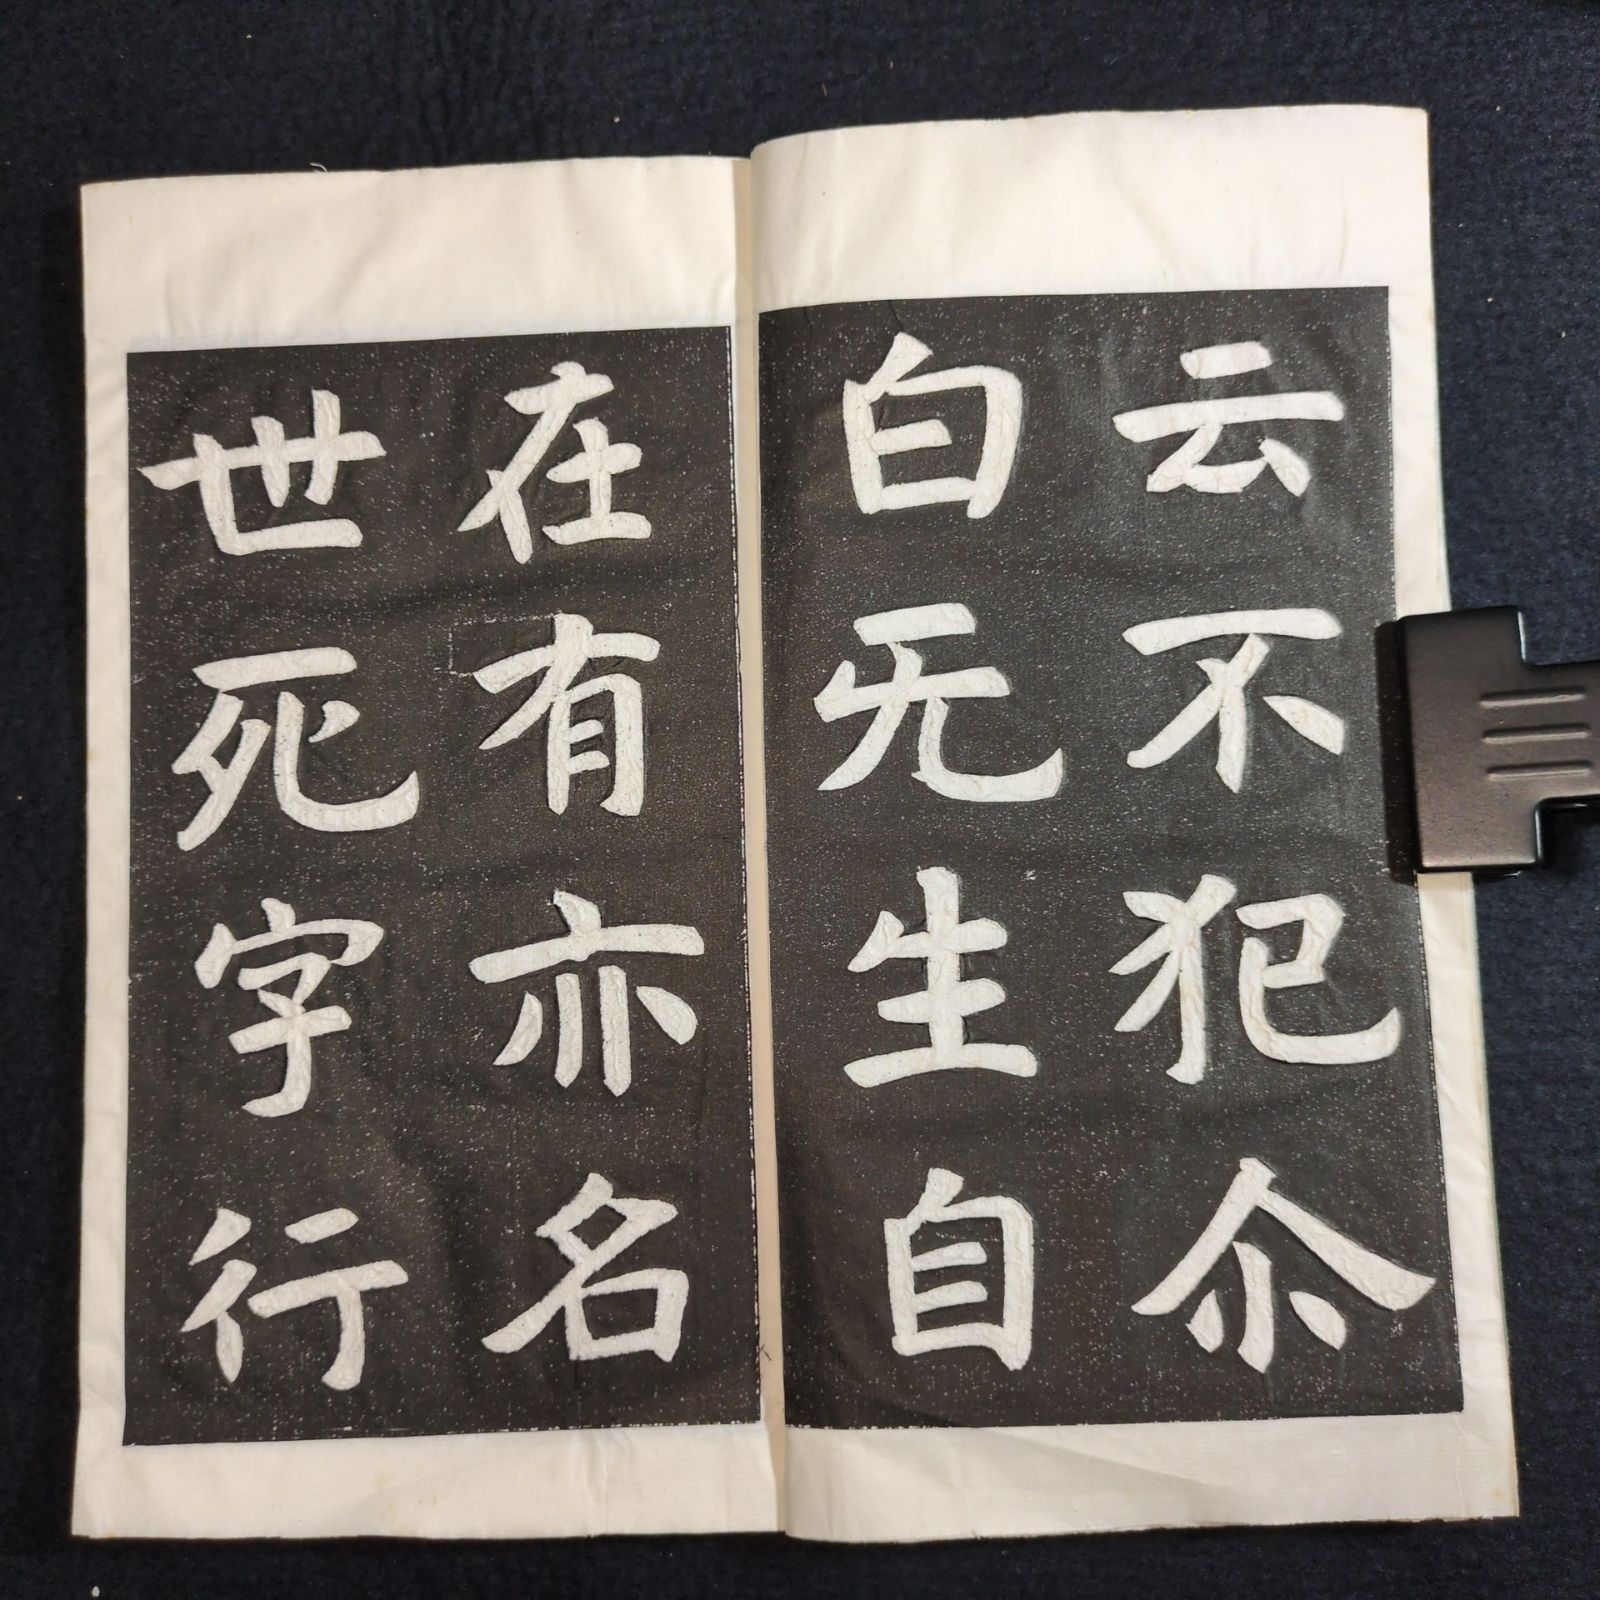 云不犯尒
白无生自
在有亦名
世死字行